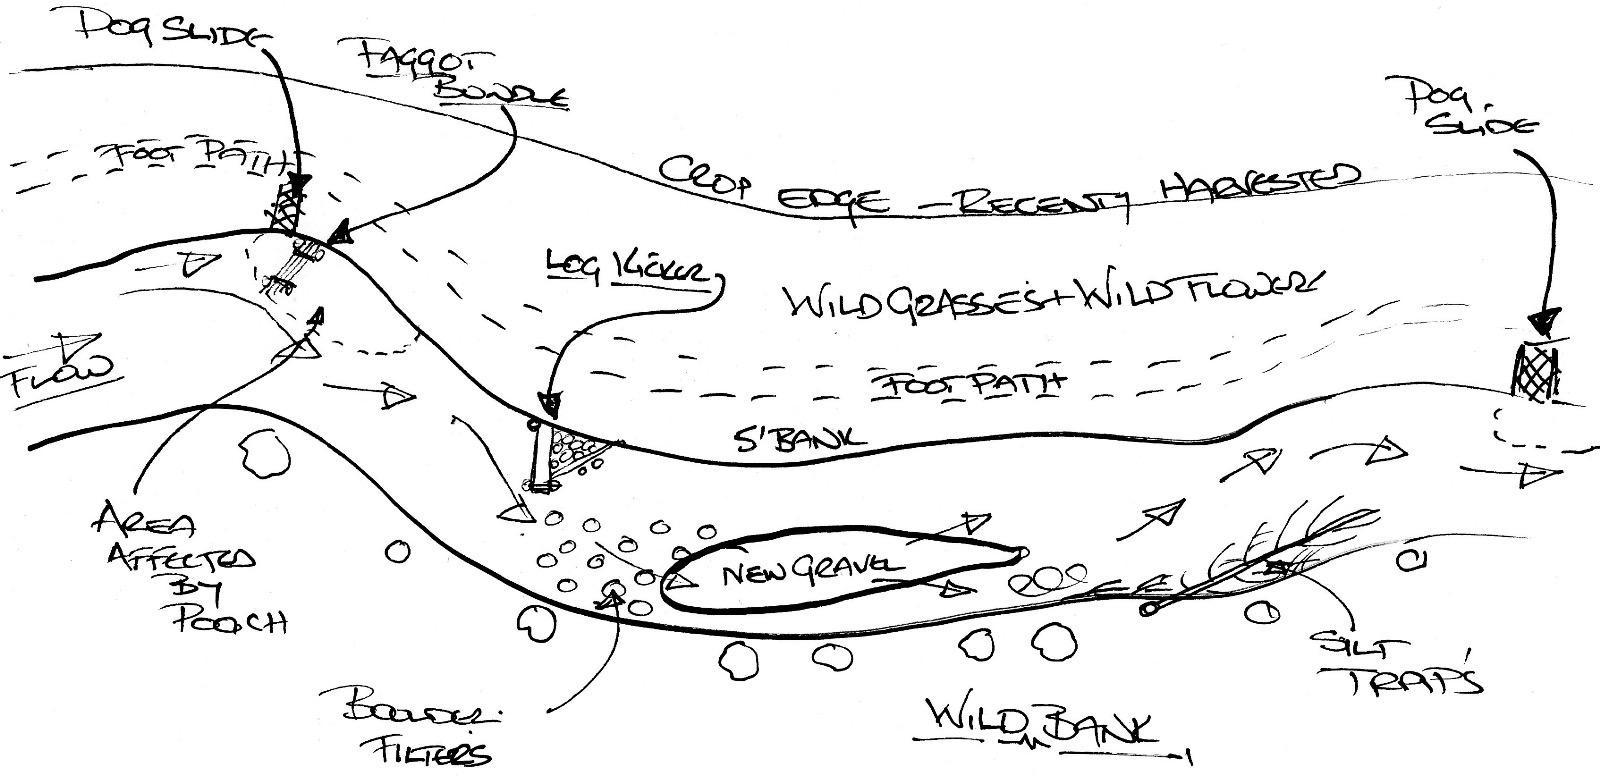 DOG SLIDE
FAGGOT
BUNDLE
DOG
SLIDE
FOOT PATH
CROP EDGE - RECENTLY HARVESTED
LOG KICKER
WILD GRASSES + WILD FLOWERS
FLOW
FOOT PATH
S' BANK
AREA
AFFECTED
BY
POOCH
NEW GRAVEL
SILT
TRAP'S
BOULDER
FILTERS
WILD BANK